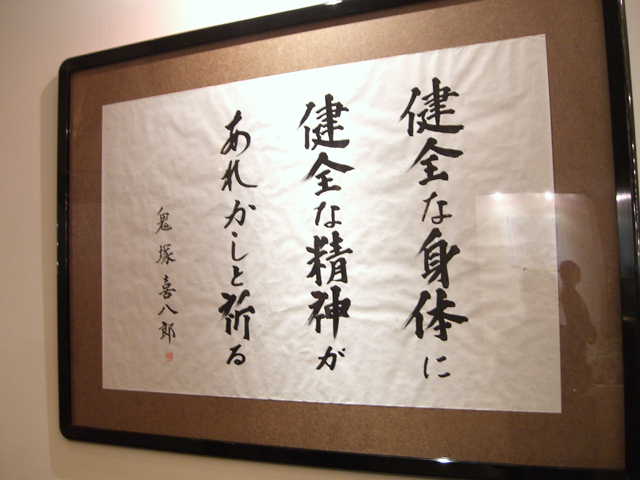 健全な身体に
健全な精神が
あれかしと祈る
鬼塚喜八郎